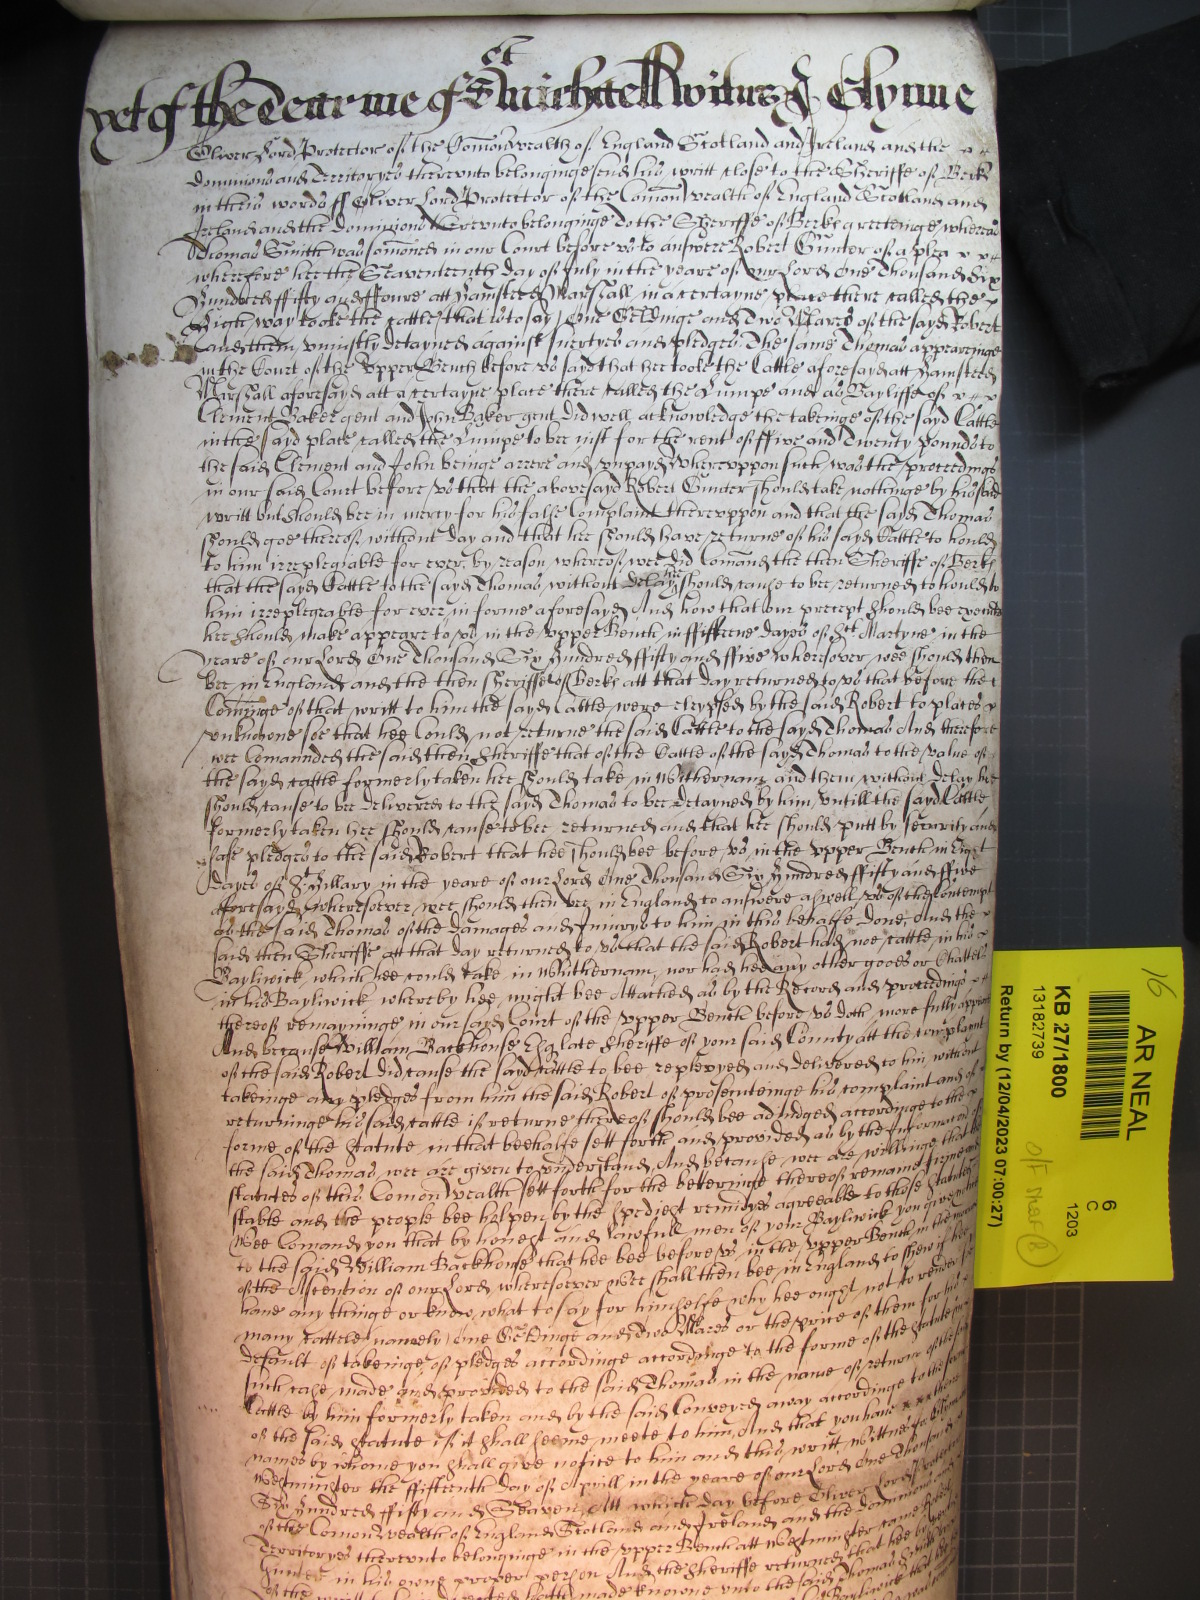 yet of the Tearme of St Michaell Witnes J Glynne
Oliver Lord Protector of the Comonwealth of England Scotland and Ireland and the
dominions and Territoryes thereunto belonginge send his writt close to the Sheriffe of Berks
in theis words ss Oliver Lord Protector of the Comon wealth of England Scotland and
Ireland and the Dominions thereunto belonginge To the Sheriffe of Berks greeteinge whereas
Thomas Smith was somoned in our Court before us to answere Robert Gunter of a plea
wherefore hee the Seaventeenth day of July in the yeare of our Lord One Thousand Six
Hundred ffifty and ffoure att Hamsteed Marshall in a certayne place there called the
High way tooke the cattle that is to say One Geldinge and Two Mares of the sayd Robert
and them uniustly detayned against suertyes and pledges The same Thomas appeareinge
in the Court of the Upper Bench before us sayd that hee tooke the Cattle aforesayd att Hamsteed
Marshall aforesayd att a certayne place there called the Lumpe and as Bayliffe of
Clement Baker gent and John Baker gent did well acknowledge the takeinge of the sayd Cattle
in the sayd place called the Lumpe to bee iust for the rent of ffive and Twenty pounds to
the said Clement and John beinge arrere and unpayd Whereuppon such was the proceedings
in our said Court before us that the abovesayd Robert Gunter should take nothinge by his said
writt but should bee in mercy for his false Complaint thereuppon and that the sayd Thomas
should goe thereof without day and that hee should have returne of his sayd Cattle to hould
to him irreplegiable for ever, by reason whereof wee did Comand the then Sheriffe of Berks
that the sayd Cattle to the sayd Thomas without delay hee should cause to bee returned to hould to
him irreplegiable for ever in forme aforesayd And how that our precept should bee executed
hee should make appeare to us in the upper Bench in ffifteene dayes of St Martyne in the
yeare of our Lord One Thousand Six Hundred ffifty and ffive wheresover wee should then
bee in England and the then Sheriffe of Berks att that day returned to us that before the
Cominge of that writt to him the sayd Cattle were eloyned by the said Robert to places
unknowne soe that hee Could not returne the said Cattle to the sayd Thomas And therefore
wee Comannded the said then Sheriffe that of the Cattle of the sayd Thomas to the value of
the sayd cattle formerly taken hee should take in Withernam and them without delay hee
should cause to bee delivered to the sayd Thomas to bee detayned by him untill the sayd Cattle
formerly taken hee should cause to bee returned and that hee should putt by security and
safe pledges to the said Robert that hee should bee before us in the upper Bench in Eight
dayes of St Hillary in the yeare of our Lord One Thousand Six Hundred ffifty and ffive
aforesayd wheresoever wee should then bee in England to answere aswell us of the contempt
as the said Thomas of the damages and Iniurys to him in this behalfe done, And the
said then Sheriffe att that day returned to us that the said Robert had noe cattle in his
Bayliwick which hee could take in Whithernam, nor had hee any other goods or Chattels
in his Bayliwick whereby hee might bee Attached as by the Record and proceedings
thereof remayninge in our sayd Court of the upper Bench before us doth more fully appeare
And because William Backhouse Esq late Sheriffe of your said County att the complaint
of the said Robert did cause the sayd cattle to bee replevyed and delivered to him without
takeinge any pledges from him the said Robert of prosecuteinge his complaint and of
returninge his said cattle if returne thereof should bee adiudged accordinge to the
forme of the Statute in that beehalfe sett forth and provided as by the Informacon of
the said Thomas wee are given to understand, And because wee are willinge that the
statutes of this Comon Wealth sett forth for the betteringe thereof remaine firme and
stable and the people bee holpen by the spediest remidyes agreeable to those Statutes
Wee Comand you that by honest and lawfull men of your Bayliwick you give notice
to the said William Backhouse that hee bee before us in the upper Bench in the morrow
of the Ascention of our Lord wheresoever wee shall then bee in England to shew if hee
have any thinge or know what to say for himselfe why hee ought not to render soe
many cattle namely One Geldinge and Two Mares or the price of them for his
default of takeinge of pledges accordinge accordinge to the forme of the Statute in
such case made and provided to the said Thomas in the name of returne of the said
Cattle by him formerly taken and by the said Conveyed away accordinge to the forme
of the said Statute if it shall seeme meete to him, And that you have there
names by whome you shall give notice to him and this writt, Wittnes
Westminster the ffifteenth day of Aprill in the yeare of our Lord One Thousand
Six Hundred ffifty and Seaven, Att which day before Oliver Lord Protector
of the Comon Wealth of England Scotland and Ireland and the dominions and
Territoryes thereunto belonginge in the upper Bench att Westminster came
in his owne proper person And the Sheriffe returned that hee by
made knowne unto the said
AR NEAL
16
KB 27/1800
13182739
Return by (12/04/2023 07:00:27)
6
C
1203